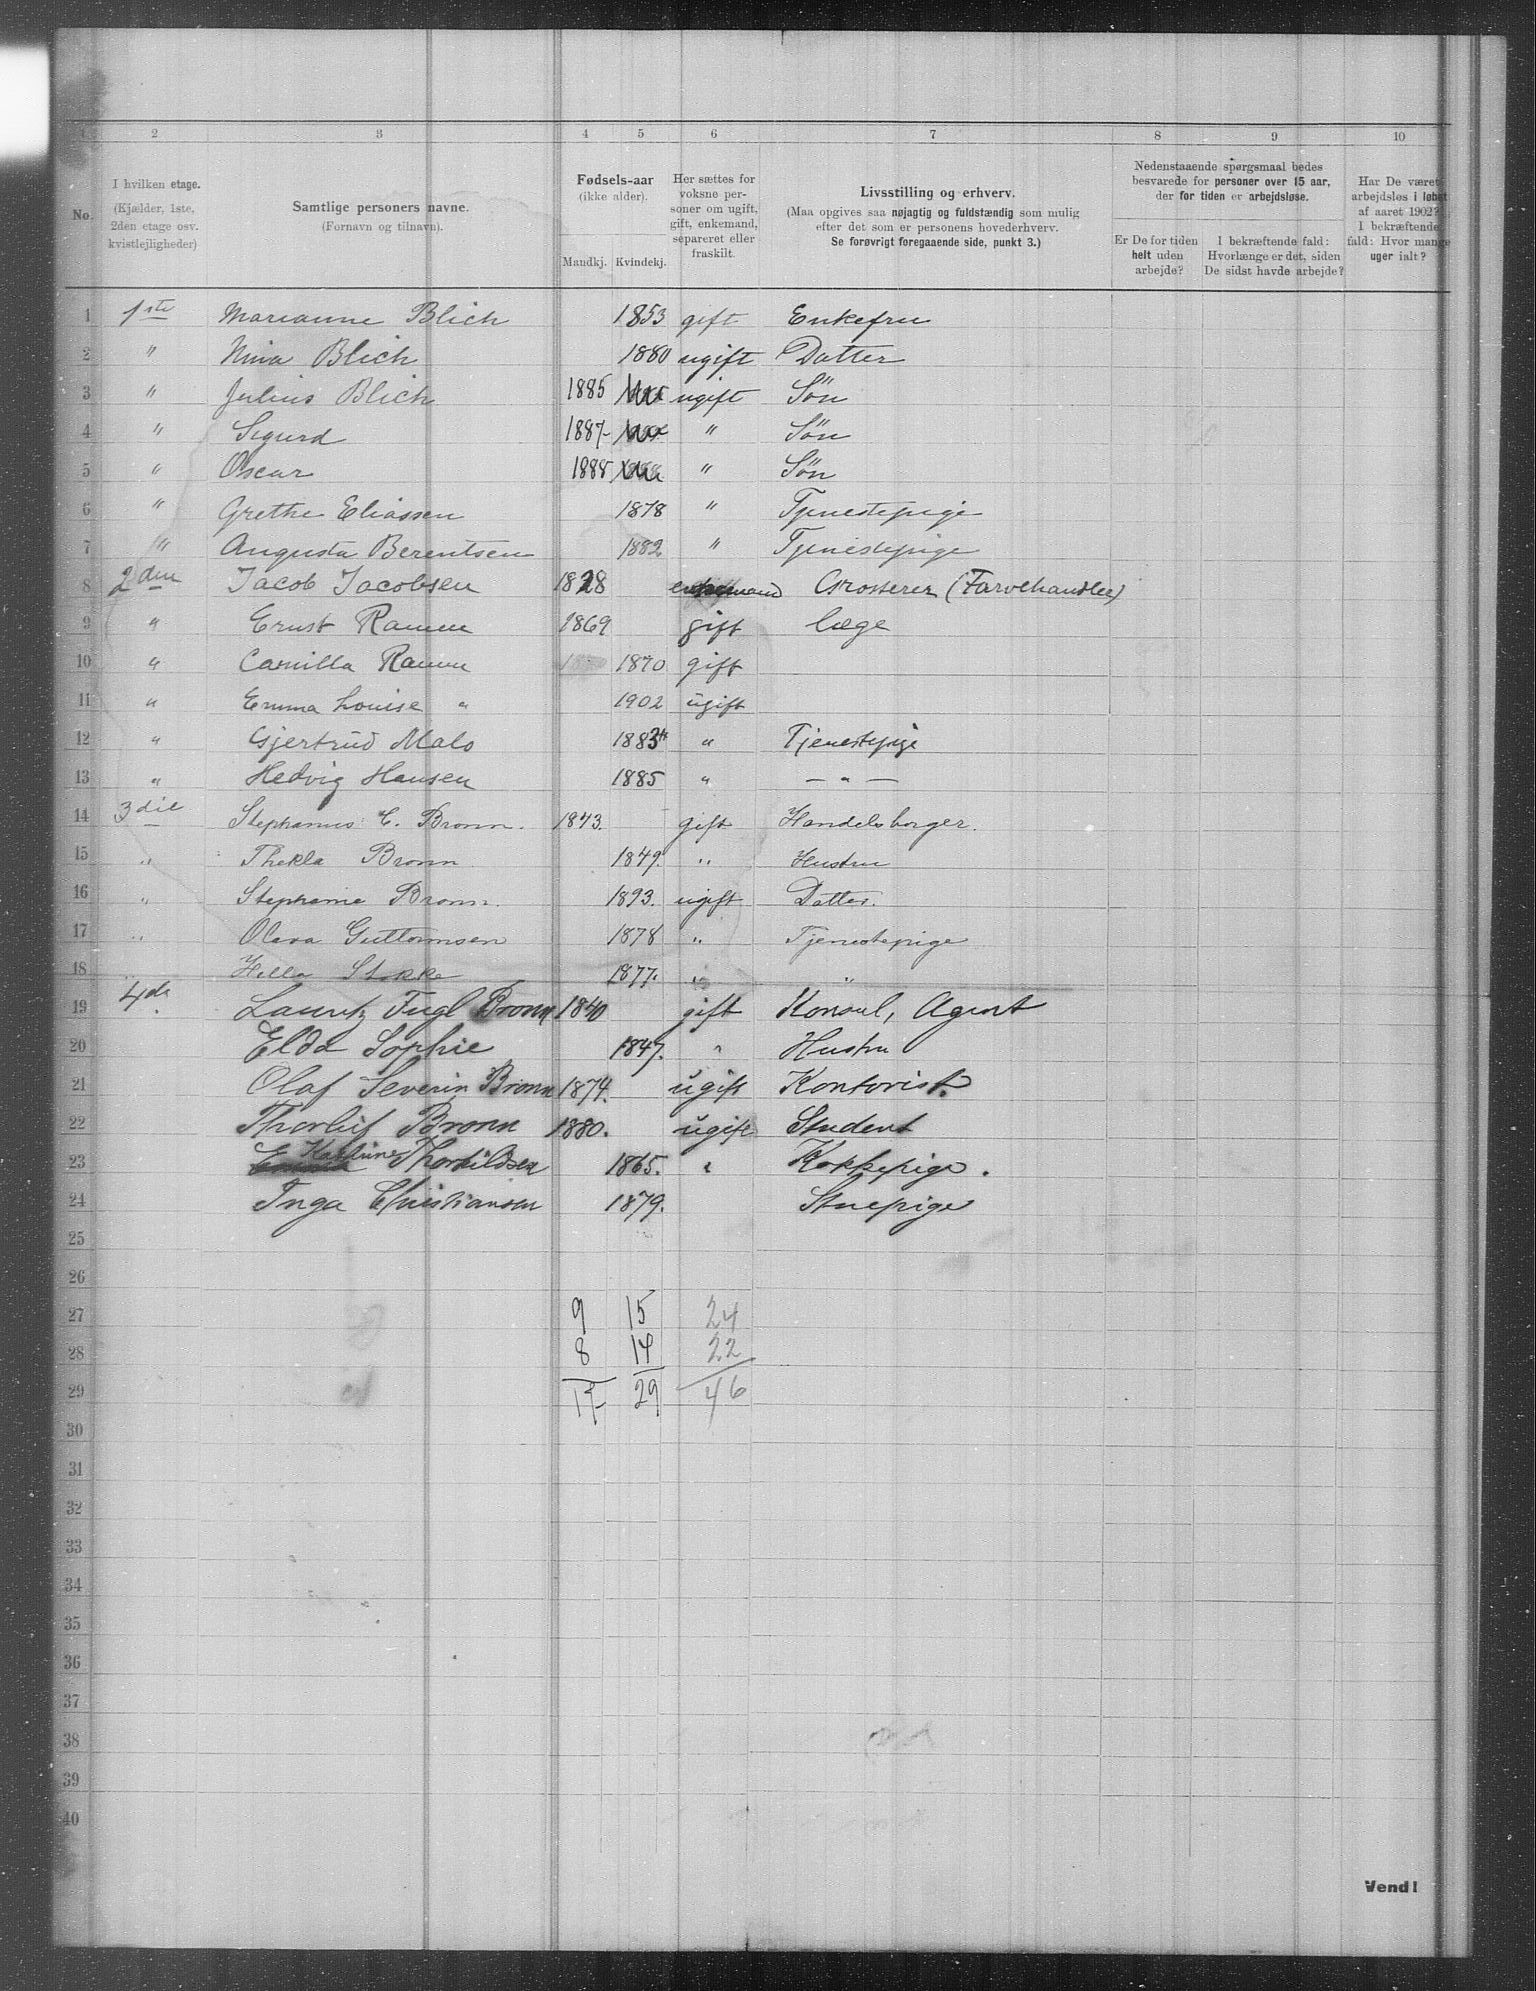 1 2 3 4 5 6 7 8 9 10
No.
I hvilken etage.
(Kjælder, 1ste,
2den etage osv.
kvistlejligheder)
Samtlige personers navne.
(Fornavn og tilnavn).
Fødsels-aar
(ikke alder).
Mandkj. Kvindekj.
Her sættes for
voksne per-
soner om ugift,
gift, enkemand,
separeret eller
fraskilt.
Livsstilling og erhverv.
(Maa opgives saa nøjagtig og fuldstændig som mulig
efter det som er personens hovederhverv.
Se forøvrigt foregaaende side, punkt 3.)
Nedenstaaende spørgsmaal bedes
besvarede for personer over 15 aar,
der for tiden er arbejdsløse.
Er De for tiden
helt uden
arbejde?
I bekræftende fald:
Hvorlænge er det, siden
De sidst havde arbejde?
Har De været
arbejdsløs i løbet
af aaret 1902?
I bekræftende
fald: Hvor mange
uger ialt?
1 1ste Marianne Blich 1853 gift Enkefru
2 " Nina Blich 1880 ugift Datter
3 " Julius Blich 1885 ugift Søn
4 " Sigurd 1887 " Søn
5 " Oscar 1888 " Søn
6 " Grethe Eliassen 1878 " Tjenestepige
7 " Augusta Berentsen 1882 " Tjenestepige
8 2den Jacob Jacobsen 1828 enkemand Grosserer (Farvehandler)
9 " Ernst Ramm 1869 gift læge
10 " Camilla Ramm 1870 gift
11 " Emma Louise " 1902 ugift
12 " Gjertrud Malo 1883 " Tjenestepige
13 " Hedvig Hansen 1885 " — " —
14 3die Stephanus C. Bronn. 1843. gift Handelsborger.
15 " Thekla Bronn 1849. " Hustru
16 " Stephanie Bronn. 1893. ugift Datter.
17 " Olava Guttormsen 1878 " Tjenestepige
18 " Hella Stokke 1877. " "
19 4de Lauritz Fugl Bronn 1840 gift Konsul, Agent
20 Elda Sophie 1847. " Hustru
21 Olaf Severin Bronn 1874. ugift Kontorist.
22 Thorleif Bronn 1880. ugift Student
23 Karline Thorkildsen 1865. " Kokkepige.
24 Inga Christiansen 1879. Stuepige
25
26
27 9 15 24
28 8 14 22
29 17 29 46
30
31
32
33
34
35
36
37
38
39
40
Vend!